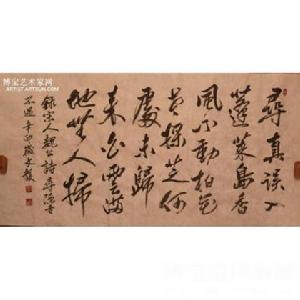 博宝艺术家网
ARTIST.ARTXUN.COM
尋真誤入
蓬萊島香
風不動松花
老採芝何
處未歸
來白雲滿
地無人掃
錄宋人魏公詩尋隱者
不遇辛卯